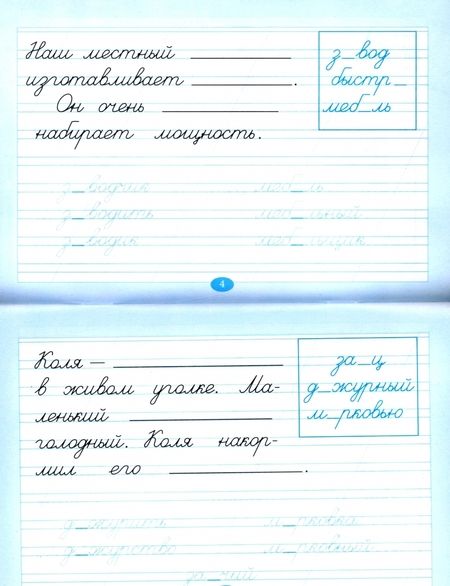 Наш местный ________
изготавливает ________.
Он очень ________
набирает мощность.
з_вод
быстр_
меб_ль
з_водчик меб_ль
з_водить меб_льный
з_водик меб_льщик
4
Коля — ________
в живом уголке. Ма-
ленький ________
голодный. Коля накор-
мил его ________.
за_ц
д_журный
м_рковью
д_журить м_рковка
д_журство м_рковный
за_чий